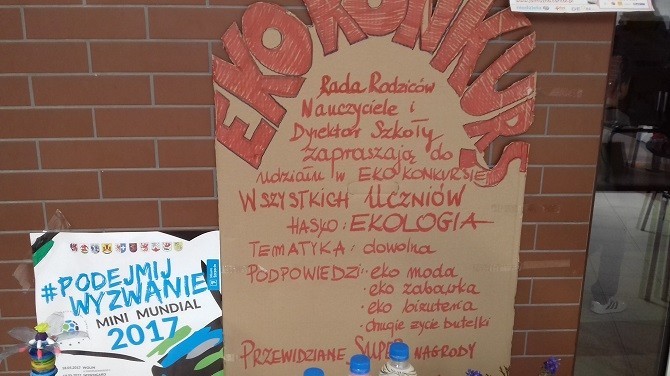 EKO KONKURS
Rada Rodziców
Nauczyciele i
Dyrektor Szkoły
zapraszają do
udziału w EKO KONKURSIE
WSZYSTKICH UCZNIÓW
HASŁO: EKOLOGIA
TEMATYKA: dowolna
PODPOWIEDZI: eko moda
• eko zabawka
• eko biżuteria
• drugie życie butelki
PRZEWIDZIANE SUPER NAGRODY
#PODEJMIJ
WYZWANIE
MINI MUNDIAL
2017
WOLIN